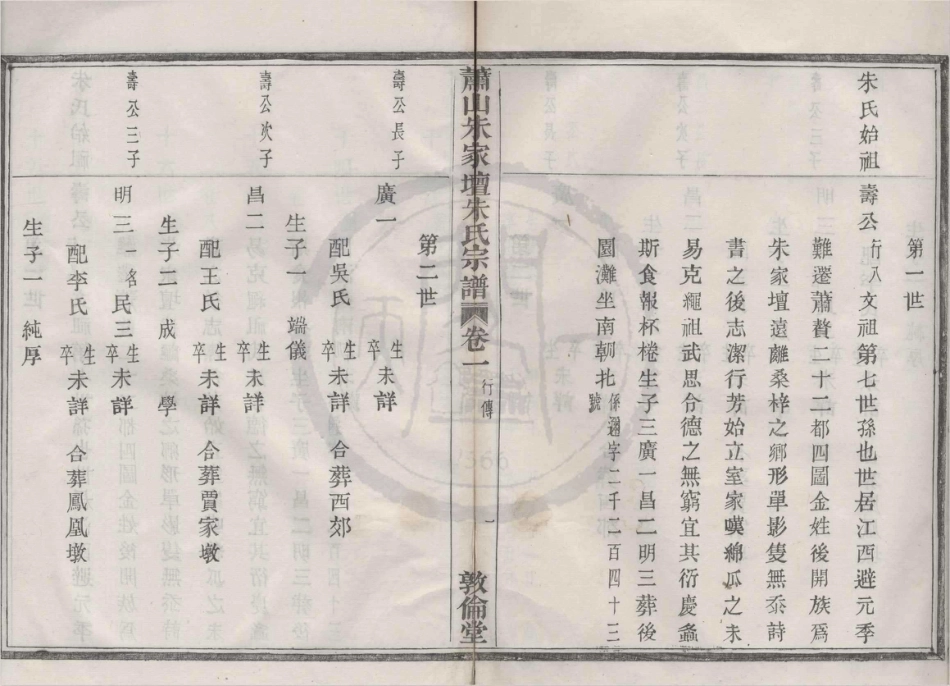 第一世
朱氏始祖
壽公行八文祖第七世孫也世居江西避元季
難遷蕭贅二十二都四圖金姓後開族爲
朱家壇遠離桑梓之鄉形單影隻無忝詩
書之後志潔行芳始立室家嘆綿瓜之未
易克繩祖武思令德之無窮宜其衍慶螽
斯食報杯棬生子三廣一昌二明三葬後
園灘坐南朝北係邇字二千二百四十三號
蕭山朱家壇朱氏宗譜 卷二 行傳 一 敦倫堂
第二世
壽公長子
廣一 生卒未詳
配吳氏 生卒未詳 合葬西郊
生子一端儀
壽公次子
昌二 生卒未詳
配王氏 生卒未詳 合葬賈家墩
生子二成 學
壽公三子
明三一名民三 生卒未詳
配李氏 生卒未詳 合葬鳳凰墩
生子二 純厚